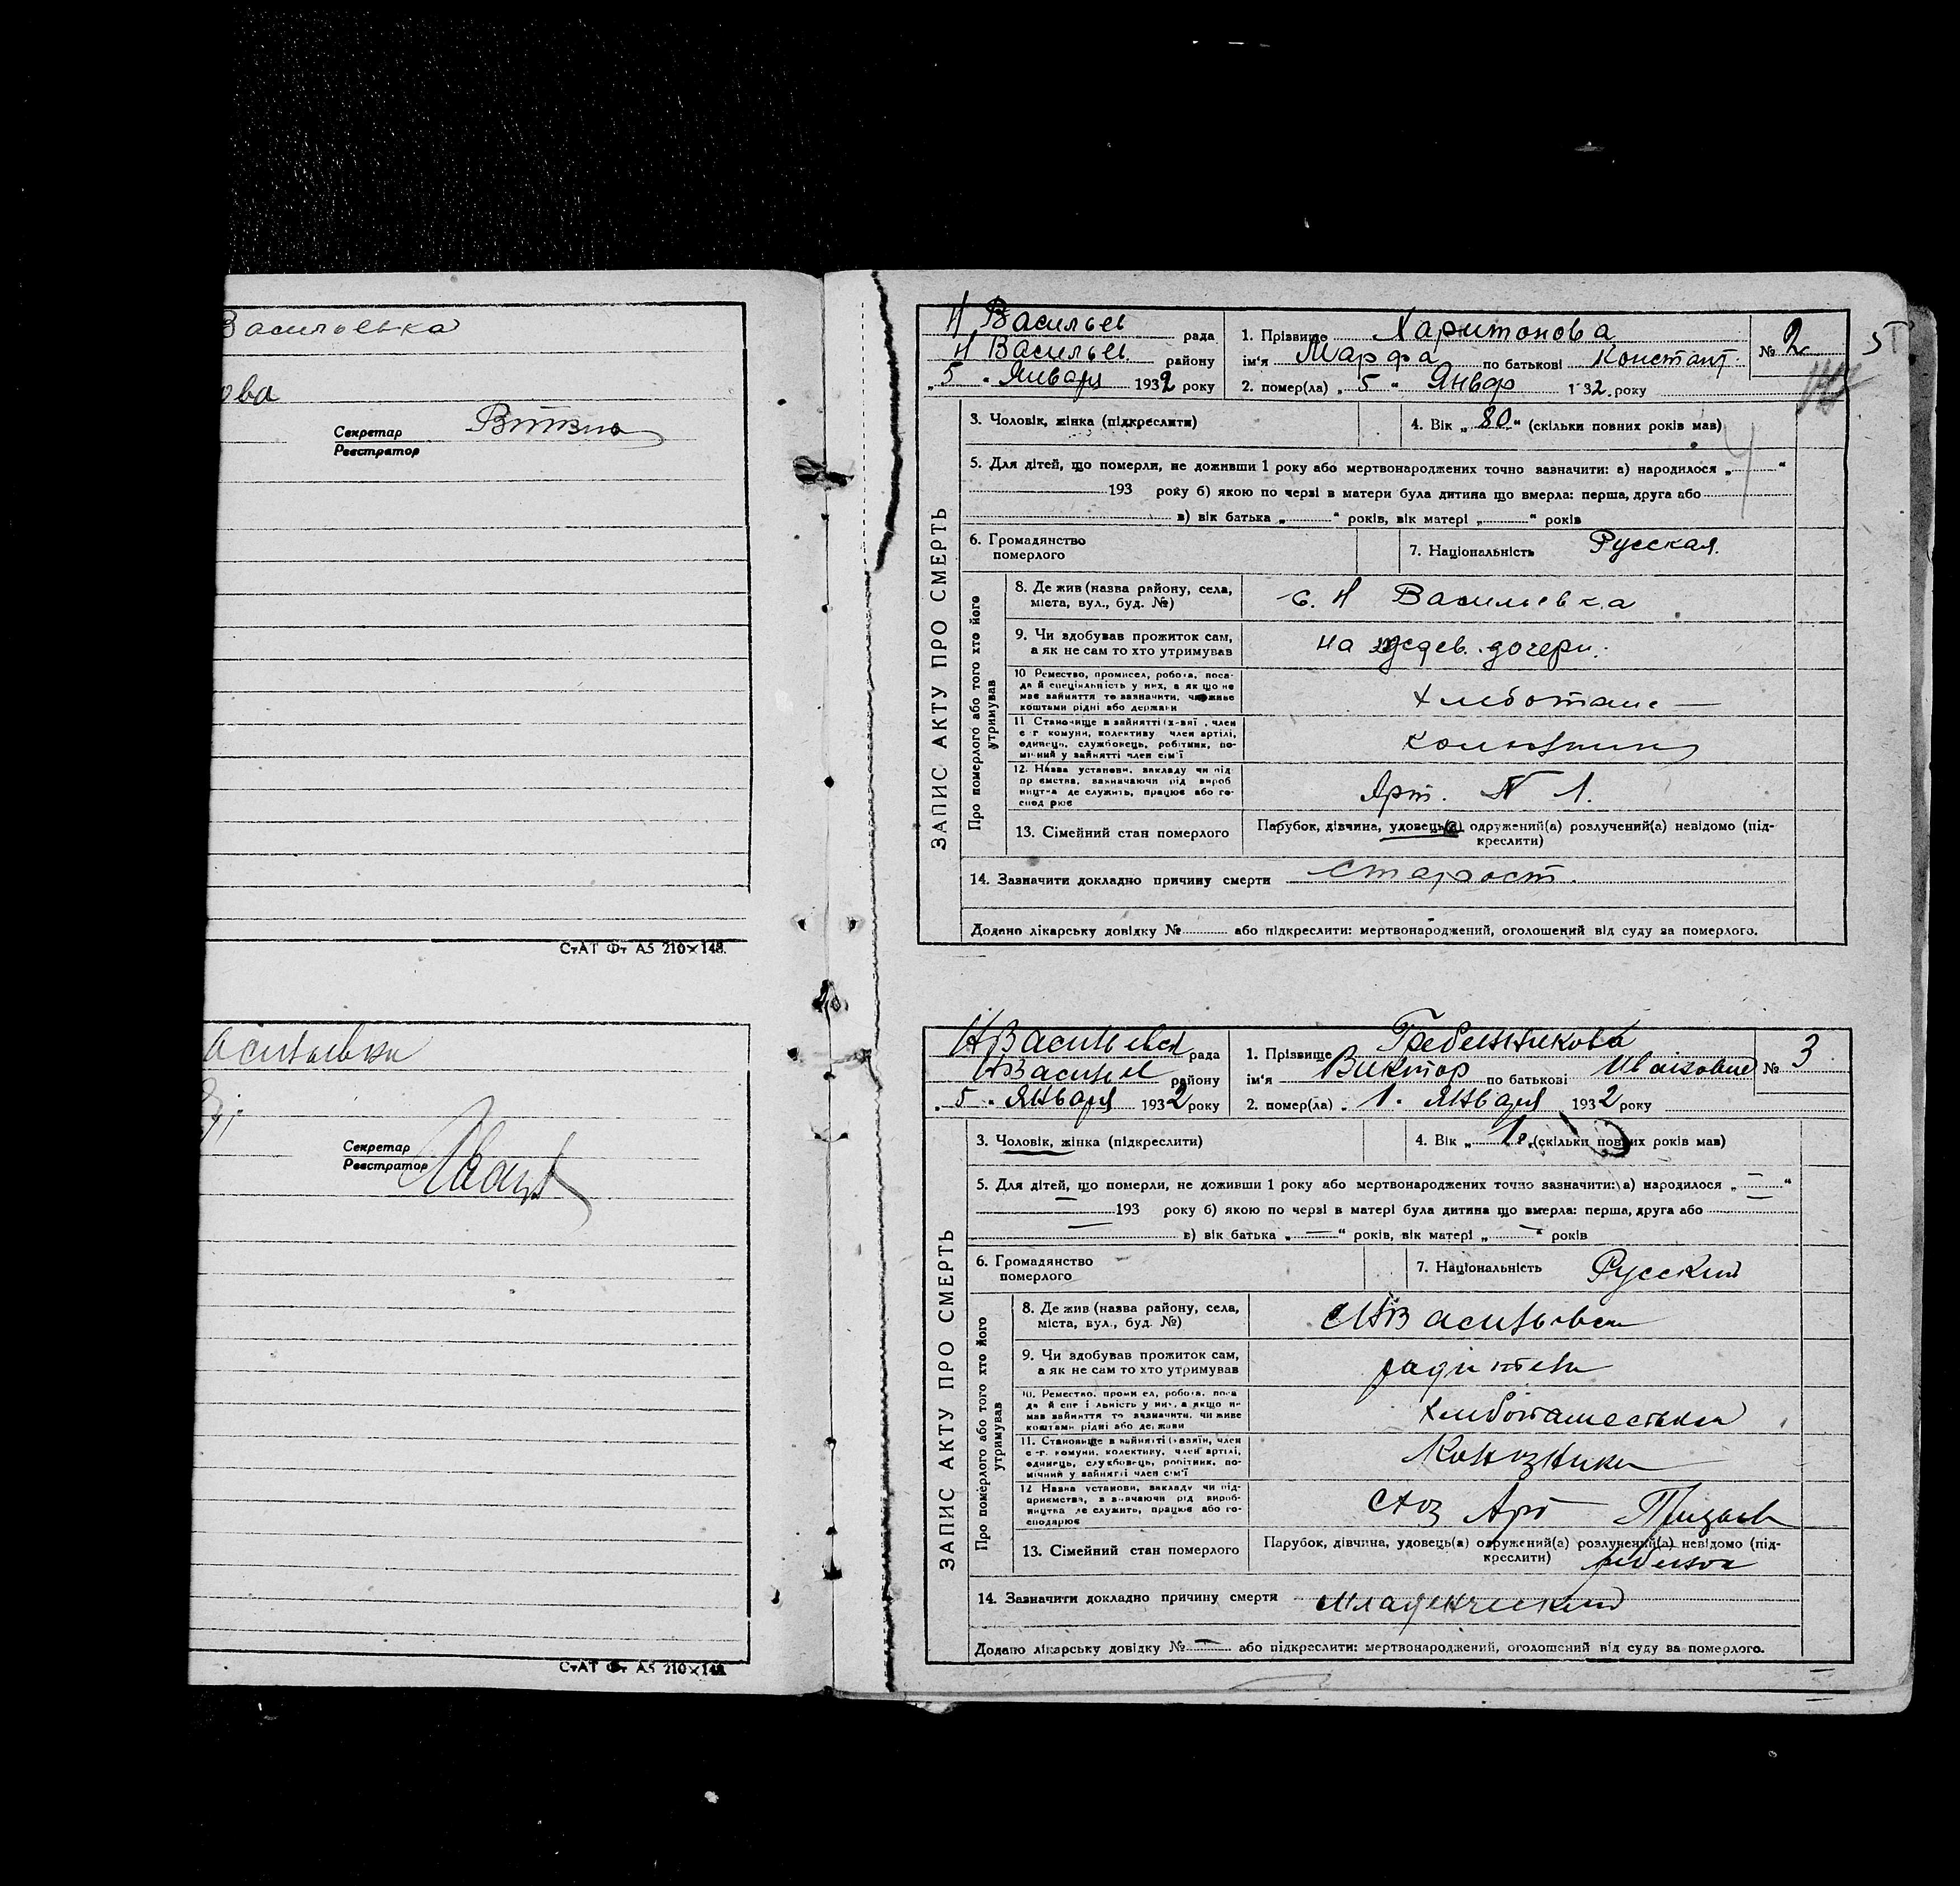 Васильевка
ова
Секретар
Реєстратор
СтАТ Фт А5 210×148.
Секретар
Реєстратор
СтАТ Фт А5 210×148.
5
ЗАПИС АКТУ ПРО СМЕРТЬ
Н Васильев рада
Н Васильев. району
„5" Января 1932 року
1. Прізвище Харитонова
ім'я Марфа по батькові Констант.
2. помер(ла) „5" Январ 1932. року
№ 2
3. Чоловік, жінка (підкреслити)
4. Вік „80" (скільки повних років мав)
5. Для дітей, що померли, не доживши 1 року або мертвонароджених точно зазначити: а) народилося „ "
193 року б) якою по черзі в матери була дитина що вмерла: перша, друга або
в) вік батька „ " років, вік матері „ " років
6. Громадянство
померлого
7. Національність Русская.
Про померлого або того хто його утримував
8. Де жив (назва району, села,
міста, вул., буд. №)
с. Н Васильевка
9. Чи здобував прожиток сам,
а як не сам то хто утримував
на дочери.
10 Ремество, промисел, робота, поса-
да й спеціальність у них, а як що не
має зайняття то зазначити, чи живе
коштами рідні або держави
11. Становище в зайнятті член
с-г. комуни, колективу член артілі,
одинець, службовець, робітник, по-
мічний у зайнятті член сім'ї
12. Назва установи, закладу чи під-
приємства, зазначаючи рід вироб-
ництва де служить, працює або го-
сподарює
Арт. N 1.
13. Сімейний стан померлого
Парубок, дівчина, удовець(а) одружений(а) розлучений(а) невідомо (під-
креслити)
14. Зазначити докладно причину смерти старост.
Додано лікарську довідку № або підкреслити: мертвонароджений, оголошений від суду за померлого.
ЗАПИС АКТУ ПРО СМЕРТЬ
НВасильевск рада
НВасильев району
„5" Января 1932 року
1. Прізвище Гребенникова
ім'я Виктор по батькові Иванович
2. помер(ла) „1" Января 1932 року
№ 3
3. Чоловік, жінка (підкреслити)
4. Вік „1" (скільки повних років мав)
5. Для дітей, що померли, не доживши 1 року або мертвонароджених точно зазначити: а) народилося „—"
— 193 року б) якою по черзі в матері була дитина що вмерла: перша, друга або
— в) вік батька „—" років, вік матері „—" років
6. Громадянство
померлого
7. Національність Русский
Про померлого або того хто його утримував
8. Де жив (назва району, села,
міста, вул., буд. №)
9. Чи здобував прожиток сам,
а як не сам то хто утримував
родители
10. Ремество, промисел, робота, поса-
да й спеціальність у них, а якщо не
має зайняття то зазначити, чи живе
коштами рідні або держави
11. Становище в зайнятті (хазяїн, член
с.-г. комуни, колективу, член артілі,
одинець, службовець, робітник, по-
мічний у зайнятті член сім'ї
12 Назва установи, закладу чи під-
приємства, зазначаючи рід вироб-
ництва де служить, працює або го-
сподарює
13. Сімейний стан померлого
Парубок, дівчина, удовець(а) одружений(а) розлучений(а) невідомо (під-
креслити) ребенок
14. Зазначити докладно причину смерти младенческий
Додано лікарську довідку № — або підкреслити: мертвонароджений, оголошений від суду за померлого.